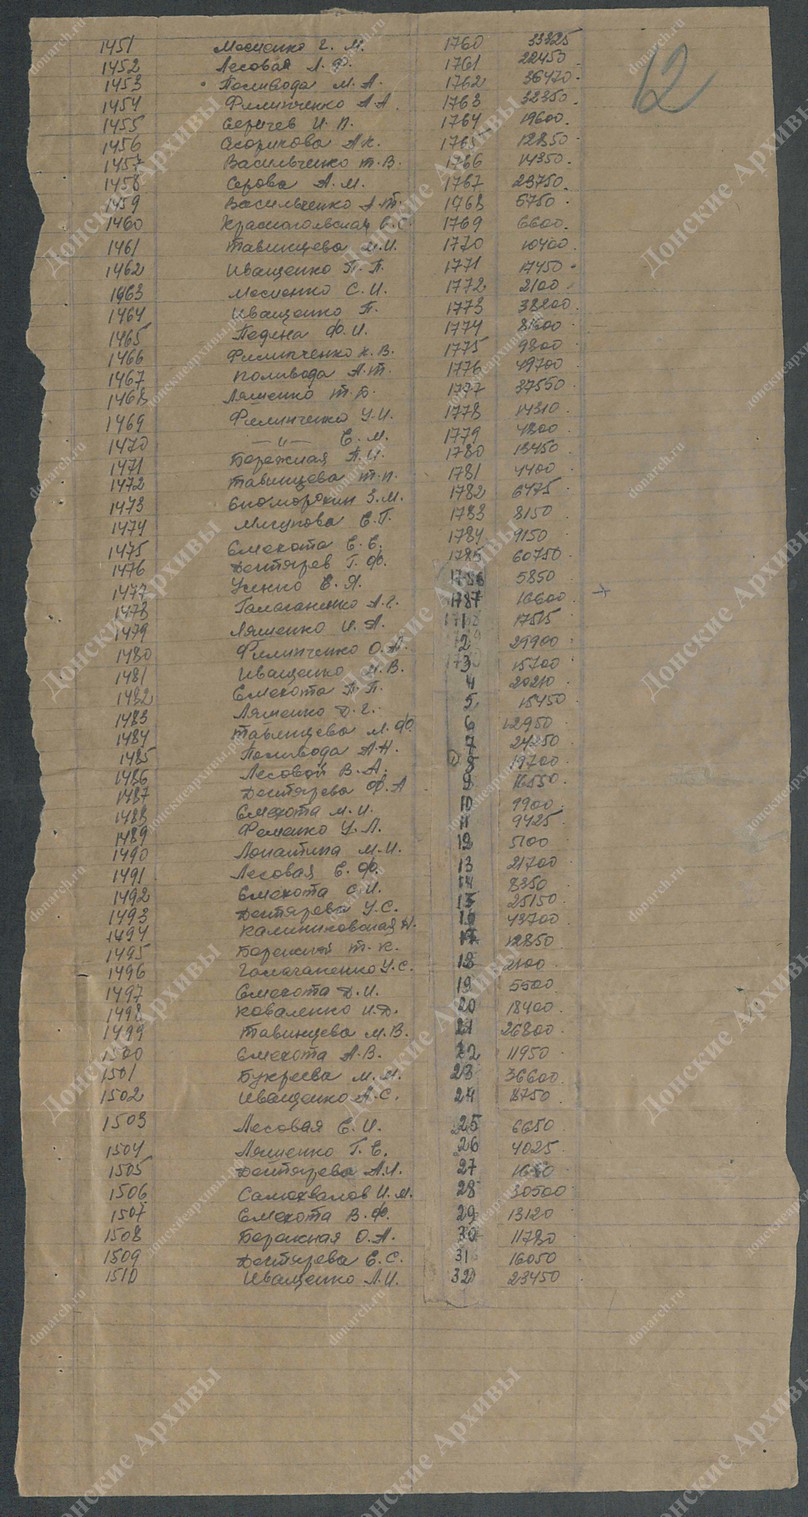 12
1451 Мосиенко Г. М. 1760 33325
1452 Лесовая Л. Ф. 1761 22450
1453 Поливода М. А. 1762 36470
1454 Филипченко А. А. 1763 32350
1455 И. П. 1764 19600
1456 Скорикова А. К. 1765 12850
1457 Васильченко Т. В. 1766 14350
1458 Серова А. М. 1767 23750
1459 Васильченко А. Т. 1768 5750
1460 1769 6600
1461 Тавинцева М. И. 1770 10400
1462 Иващенко П. П. 1771 17450
1463 Мосиенко С. И. 1772 2100
1464 Иващенко П. 1773 38200
1465 Ф. И. 1774
1466 Филипченко К. В. 1775 9800
1467 Поливода А. Т. 1776 49700
1468 Ляшенко 1777 37550
1469 Филипченко У. И. 1778 14310
1470 —"— Е. М. 1779 4800
1471 Бережная А. И. 1780 13450
1472 Тавинцева Т. П. 1781 4400
1473 Скоморохин З. М. 1782 6475
1474 Мигунова Е. Г. 1783 8150
1475 Смекота Е. Е. 1784 9150
1476 Дегтярев Г. Ф. 1785 60750
1477 Усенко Е. Я. 1786 5850
1478 Галаганенко А. Г. 1787 16600
1479 Ляшенко И. А. 1 17515
1480 Филипченко О. А. 2 29900
1481 Иващенко М. В. 3 15700
1482 Смекота П. П. 4 20210
1483 Ляшенко Д. Г. 5 15450
1484 Тавинцева М. Ф. 6 12950
1485 Поливода А. Н. 7 24250
1486 Лесовой В. А. 8 19700
1487 Дегтярева Ф. А 9 16550
1488 Смекота М. И. 10 9900
1489 Фоменко У. Л. 11 9425
1490 Лопатина М. И. 12 5100
1491 Лесовая Е. Ф. 13 21700
1492 Смекота С. И. 14 8350
1493 Дегтярева У. С. 15 25150
1494 Калиниковская 16 43700
1495 Бережной Т. К. 17 12850
1496 Галаганенко У. С. 18 2100
1497 Смекота Д. И. 19 5500
1498 Коваленко И. Д. 20 18400
1499 Тавинцева М. В. 21 26800
1500 Смекота А. В. 22 11950
1501 Букреева М. М. 23 36600
1502 Иващенко А. С. 24 8750
1503 Лесовая Е. И. 25 6650
1504 Ляшенко Г. Е. 26 4025
1505 Дегтярева А. И. 27
1506 Самохвалов И. М. 28 30500
1507 Смекота В. Ф. 29 13120
1508 Бережная О. А. 30 11780
1509 Дегтярева Е. С. 31 16050
1510 Иващенко Л. И. 32 23450
Донские Архивы
donarch.ru
донскиеархивы.рф